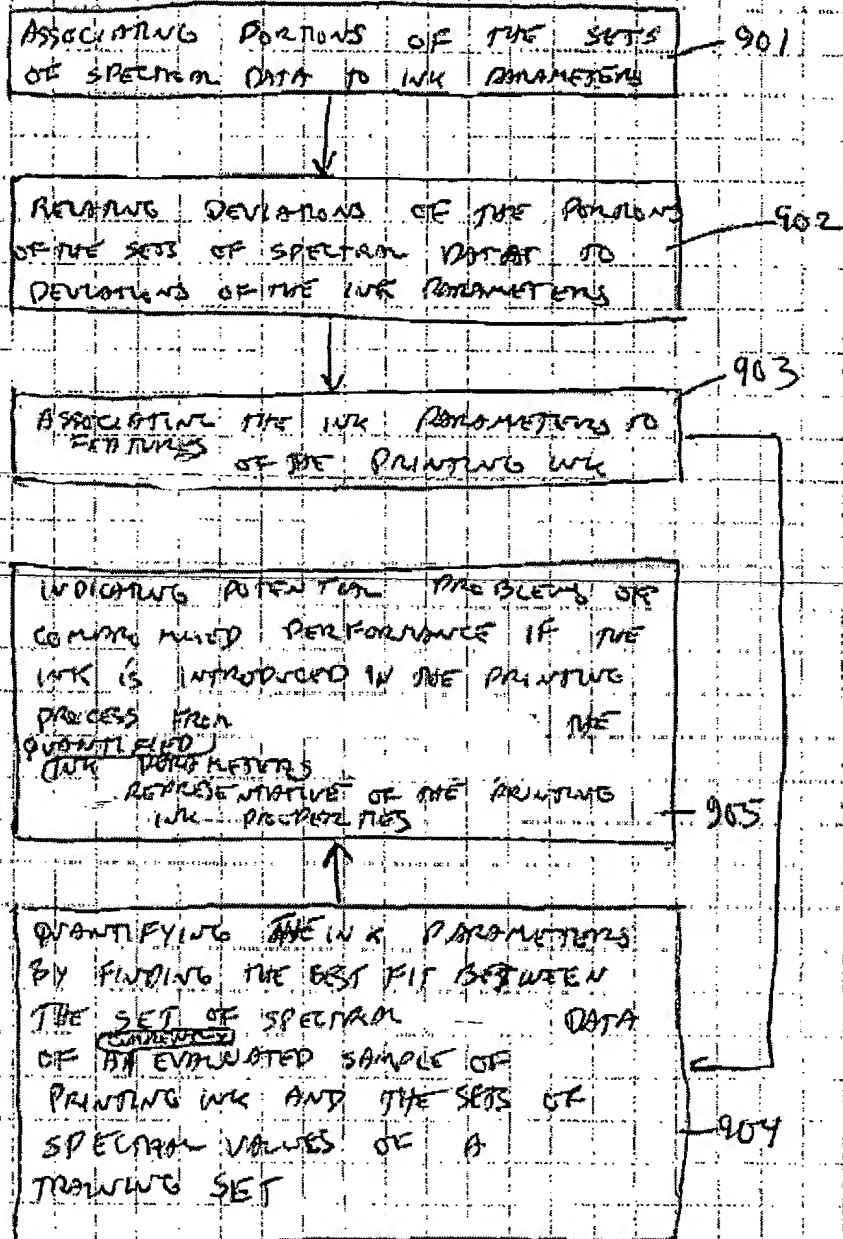 ASSOCIATING PORTIONS OF THE SETS
OF SPECTRAL DATA TO INK PARAMETERS
901
RELATING DEVIATIONS OF THE PORTIONS
OF THE SETS OF SPECTRAL DATAT TO
DEVIATIONS OF THE INK PARAMETERS
902
903
ASSOCIATING THE INK PARAMETERS TO
FEATURES
OF THE PRINTING INK
INDICATING POTENTIAL PROBLEMS OR
COMPROMISED PERFORMANCE IF THE
INK IS INTRODUCED IN THE PRINTING
PROCESS FROM THE
QUANTIFIED
INK PARAMETERS
REPRESENTATIVE OF THE PRINTING
INK PROPERTIES
905
QUANTIFYING THE INK PARAMETERS
BY FINDING THE BEST FIT BETWEEN
THE SET OF SPECTRAL DATA
CURRENTLY
OF AN EVALUATED SAMPLE OF
PRINTING INK AND THE SETS OF
SPECTRAL VALUES OF A
TRAINING SET
904